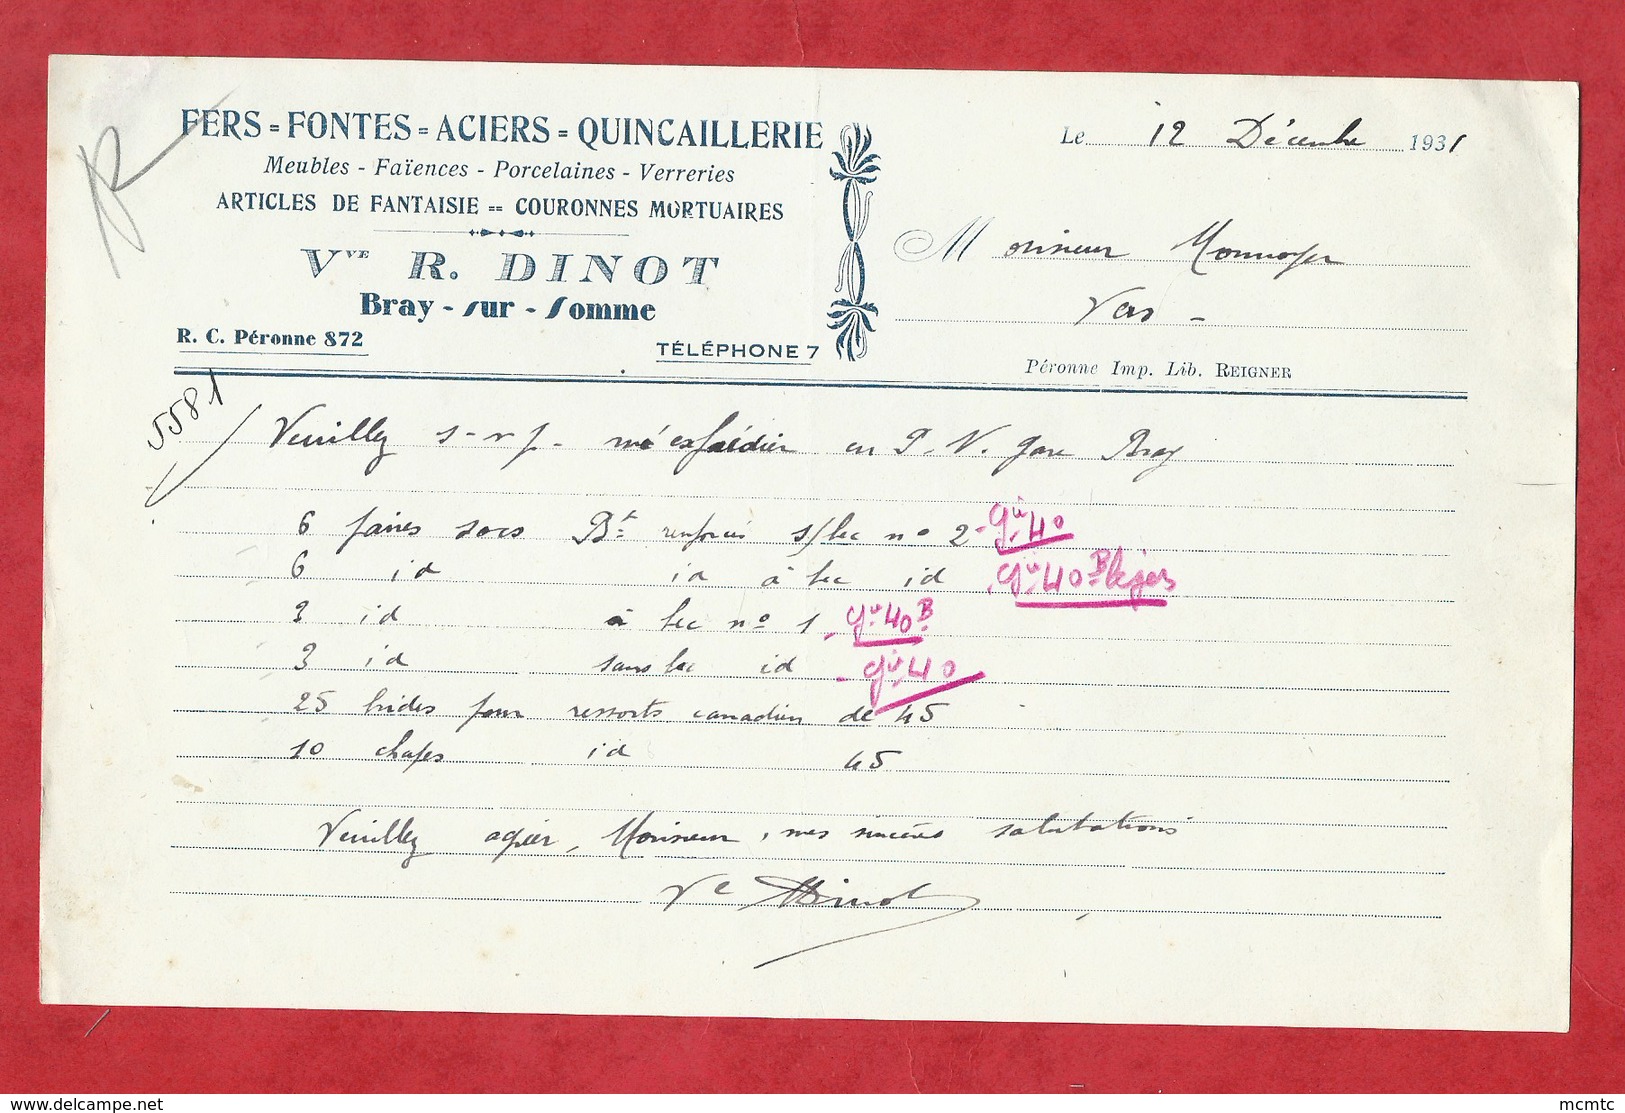 FERS = FONTES = ACIERS = QUINCAILLERIE
Meubles - Faïences - Porcelaines - Verreries
ARTICLES DE FANTAISIE == COURONNES MORTUAIRES
Vve R. DINOT
Bray - sur - Somme
R. C. Péronne 872
TÉLÉPHONE 7
Le 12 Décembre 1931
Monsieur Monnoyer
Vers -
Péronne Imp. Lib. REIGNER
5581
Veuillez s-v-p- m'expédier en P. V. gare Bray
6 paires socs Bt renforcés s/bec nº 2 - gu 40
6 id id à bec id - gu 40 B légers
3 id à bec nº 1 - gu 40 B
3 id sans bec id - gu 40
25 brides pour ressorts canadien de 45
10 chapes id 45
Veuillez agréer, Monsieur, mes sincères salutations
Ve Dinot
delcampe.net
mcmtc